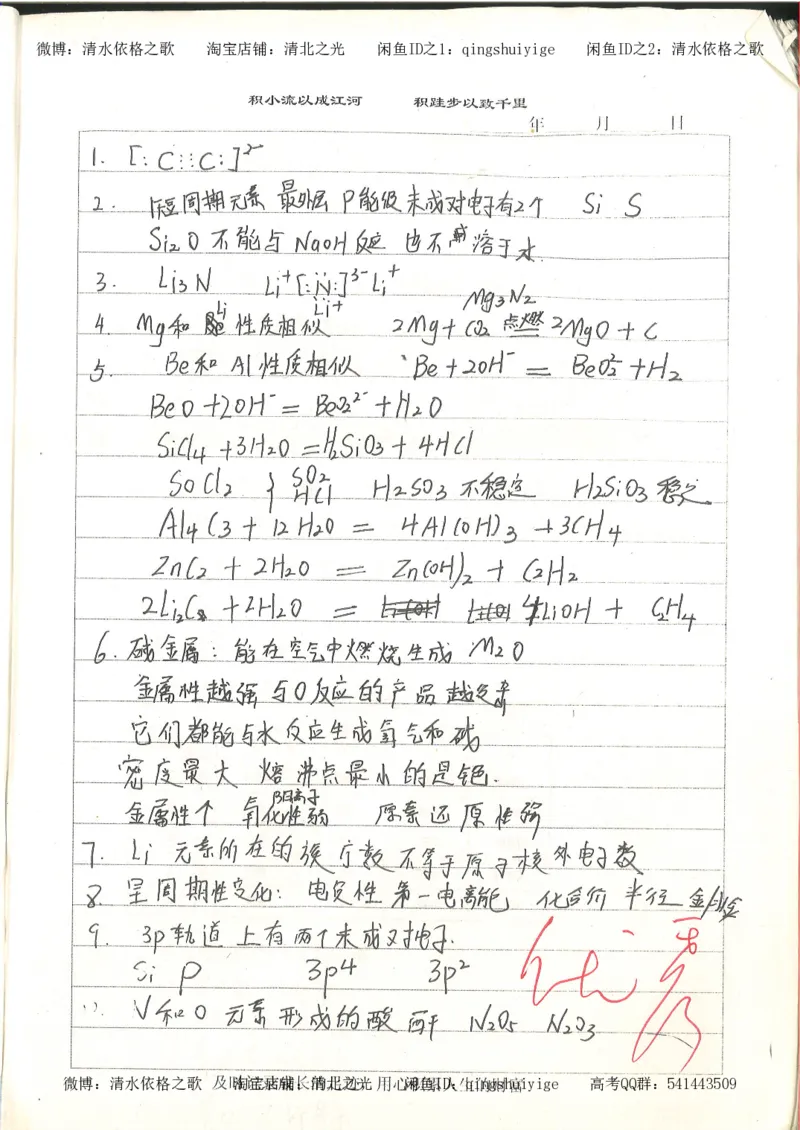 微博：清水依格之歌 淘宝店铺：清北之光 闲鱼ID之1：qingshuiyige 闲鱼ID之2：清水依格之歌
积小流以成江河 积跬步以致千里
年 月 日
1. [:C⋮⋮C:]²⁻
2. 短周期元素 最外层 P能级未成对电子有2个 Si S
Si₂O 不能与 NaOH反应 也不 溶于水
3. Li₃N Li⁺[:N:]³⁻Li⁺
Li⁺
Mg₃N₂
4. Mg和 Li 性质相似 2Mg + CO₂ 点燃 2MgO + C
5. Be和 Al 性质相似 Be + 2OH⁻ = BeO₂²⁻ + H₂
BeO + 2OH⁻ = BeO₂²⁻ + H₂O
SiCl₄ + 3H₂O = H₂SiO₃ + 4HCl
SOCl₂ { SO₂ HCl H₂SO₃ 不稳定 H₂SiO₃ 稳定
Al₄C₃ + 12H₂O = 4Al(OH)₃ + 3CH₄
ZnC₂ + 2H₂O = Zn(OH)₂ + C₂H₂
2Li₂C + 2H₂O = 4LiOH + C₂H₄
6. 碱金属：能在空气中燃烧生成 M₂O
金属性越强 与O反应的产品 越复杂
它们都能与水反应生成氢气和碱
密度最大 熔沸点最小的是铯.
金属性个 阳离子氧化性弱 原素还原性强
7. Li 元素所在的族序数不等于原子核外电子数
8. 呈周期性变化：电负性 第一电离能 化合价 半径 金/非金
9. 3p轨道上有两个未成对电子.
Si P 3p4 3p²
V和O 元素形成的酸酐 N₂O₅ N₂O₃
优秀
微博：清水依格之歌 淘宝店铺：清北之光 闲鱼ID：qingshuiyige 高考QQ群：541443509